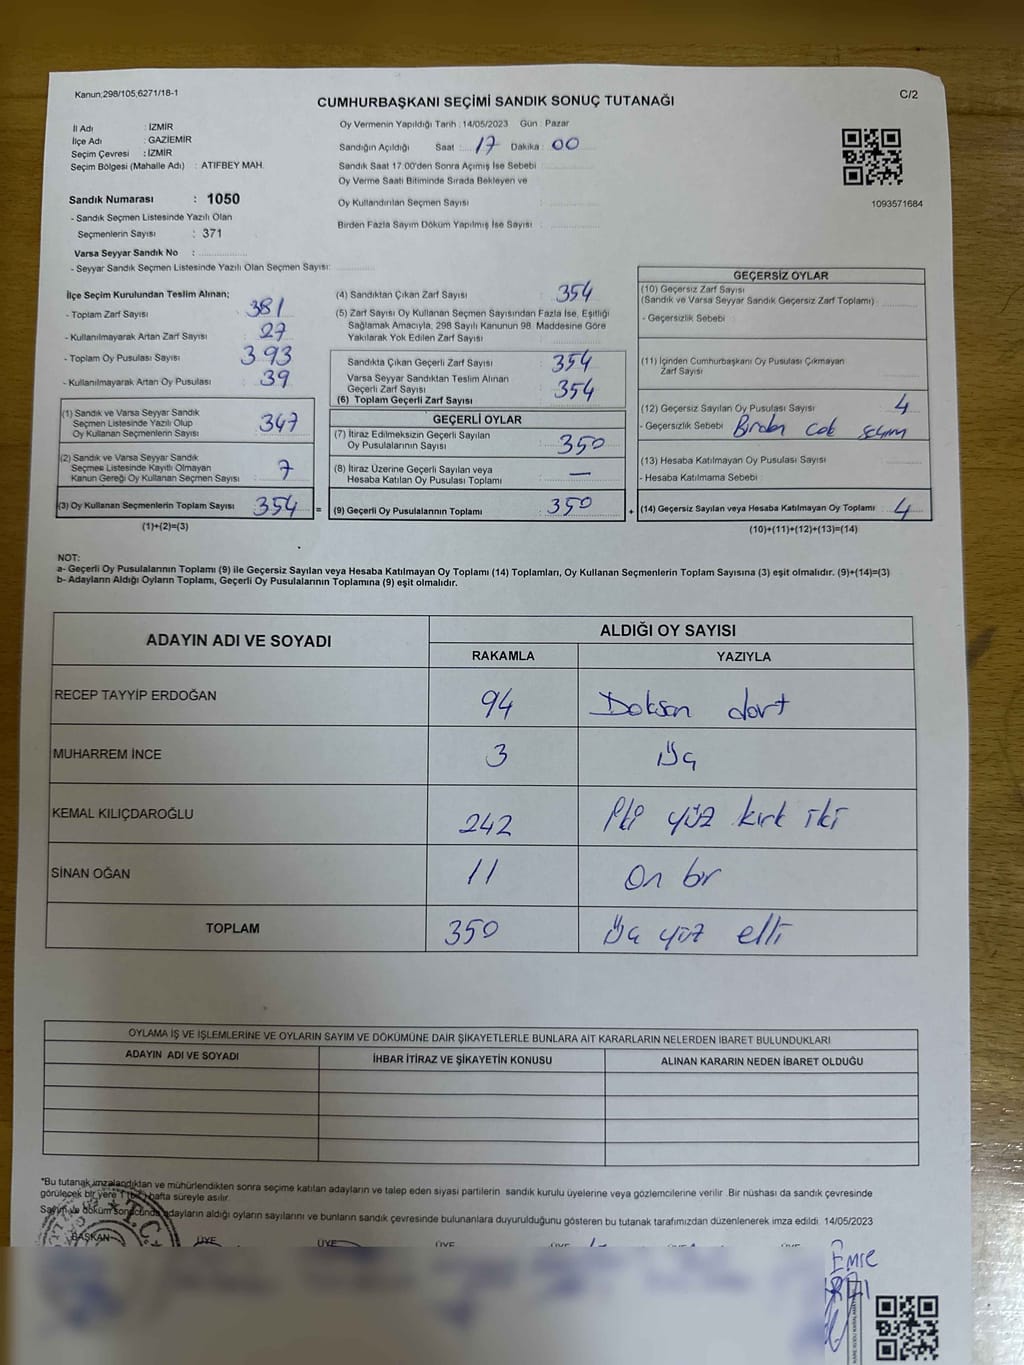 Kanun;298/105,6271/18-1
C/2
CUMHURBAŞKANI SEÇİMİ SANDIK SONUÇ TUTANAĞI
İl Adı : İZMİR
İlçe Adı : GAZİEMİR
Seçim Çevresi : İZMİR
Seçim Bölgesi (Mahalle Adı) : ATIFBEY MAH.
Oy Vermenin Yapıldığı Tarih : 14/05/2023 Gün : Pazar
Sandığın Açıldığı Saat : 17 Dakika : 00
Sandık Saat 17:00'den Sonra Açımış İse Sebebi :
Oy Verme Saati Bitiminde Sırada Bekleyen ve
Oy Kullandırılan Seçmen Sayısı :
Birden Fazla Sayım Döküm Yapılmış İse Sayısı :
1093571684
Sandık Numarası : 1050
- Sandık Seçmen Listesinde Yazılı Olan
Seçmenlerin Sayısı : 371
Varsa Seyyar Sandık No :
- Seyyar Sandık Seçmen Listesinde Yazılı Olan Seçmen Sayısı:
İlçe Seçim Kurulundan Teslim Alınan;
- Toplam Zarf Sayısı : 381
- Kullanılmayarak Artan Zarf Sayısı : 27
- Toplam Oy Pusulası Sayısı : 393
- Kullanılmayarak Artan Oy Pusulası : 39
(1) Sandık ve Varsa Seyyar Sandık
Seçmen Listesinde Yazılı Olup
Oy Kullanan Seçmenlerin Sayısı : 347
(2) Sandık ve Varsa Seyyar Sandık
Seçmen Listesinde Kayıtlı Olmayan
Kanun Gereği Oy Kullanan Seçmen Sayısı : 7
(3) Oy Kullanan Seçmenlerin Toplam Sayısı : 354 =
(1)+(2)=(3)
(4) Sandıktan Çıkan Zarf Sayısı : 354
(5) Zarf Sayısı Oy Kullanan Seçmen Sayısından Fazla İse, Eşitliği
Sağlamak Amacıyla, 298 Sayılı Kanunun 98. Maddesine Göre
Yakılarak Yok Edilen Zarf Sayısı :
Sandıkta Çıkan Geçerli Zarf Sayısı : 354
Varsa Seyyar Sandıktan Teslim Alınan
Geçerli Zarf Sayısı :
(6) Toplam Geçerli Zarf Sayısı : 354
GEÇERLİ OYLAR
(7) İtiraz Edilmeksizin Geçerli Sayılan
Oy Pusulasının Sayısı : 350
(8) İtiraz Üzerine Geçerli Sayılan veya
Hesaba Katılan Oy Pusulası Toplamı : —
(9) Geçerli Oy Pusulalarının Toplamı : 350 +
GEÇERSİZ OYLAR
(10) Geçersiz Zarf Sayısı
(Sandık ve Varsa Seyyar Sandık Geçersiz Zarf Toplamı) :
- Geçersizlik Sebebi :
(11) İçinden Cumhurbaşkanı Oy Pusulası Çıkmayan
Zarf Sayısı :
(12) Geçersiz Sayılan Oy Pusulası Sayısı : 4
- Geçersizlik Sebebi : Birden çok seçim
(13) Hesaba Katılmayan Oy Pusulası Sayısı :
- Hesaba Katılmama Sebebi :
(14) Geçersiz Sayılan veya Hesaba Katılmayan Oy Toplamı : 4
(10)+(11)+(12)+(13)=(14)
NOT:
a- Geçerli Oy Pusulalarının Toplamı (9) ile Geçersiz Sayılan veya Hesaba Katılmayan Oy Toplamı (14) Toplamları, Oy Kullanan Seçmenlerin Toplam Sayısına (3) eşit olmalıdır. (9)+(14)=(3)
b- Adayların Aldığı Oyların Toplamı, Geçerli Oy Pusulalarının Toplamına (9) eşit olmalıdır.
ADAYIN ADI VE SOYADI
ALDIĞI OY SAYISI
RAKAMLA YAZIYLA
RECEP TAYYİP ERDOĞAN 94 Doksan dört
MUHARREM İNCE 3 Üç
KEMAL KILIÇDAROĞLU 242 İki yüz kırk iki
SİNAN OĞAN 11 On bir
TOPLAM 350 Üç yüz elli
OYLAMA İŞ VE İŞLEMLERİNE VE OYLARIN SAYIM VE DÖKÜMÜNE DAİR ŞİKAYETLERLE BUNLARA AİT KARARLARIN NELERDEN İBARET BULUNDUKLARI
ADAYIN ADI VE SOYADI İHBAR İTİRAZ VE ŞİKAYETİN KONUSU ALINAN KARARIN NEDEN İBARET OLDUĞU
*Bu tutanak,imzalandıktan ve mühürlendikten sonra seçime katılan adayların ve talep eden siyasi partilerin sandık kurulu üyelerine veya gözlemcilerine verilir. Bir nüshası da sandık çevresinde
görülecek bir yere 1 (bir) hafta süreyle asılır.
Sayım ve döküm sonucunda adayların aldığı oyların sayılarını ve bunların sandık çevresinde bulunanlara duyurulduğunu gösteren bu tutanak tarafımızdan düzenlenerek imza edildi. 14/05/2023
BAŞKAN ÜYE ÜYE ÜYE ÜYE ÜYE
T.C.
Emre